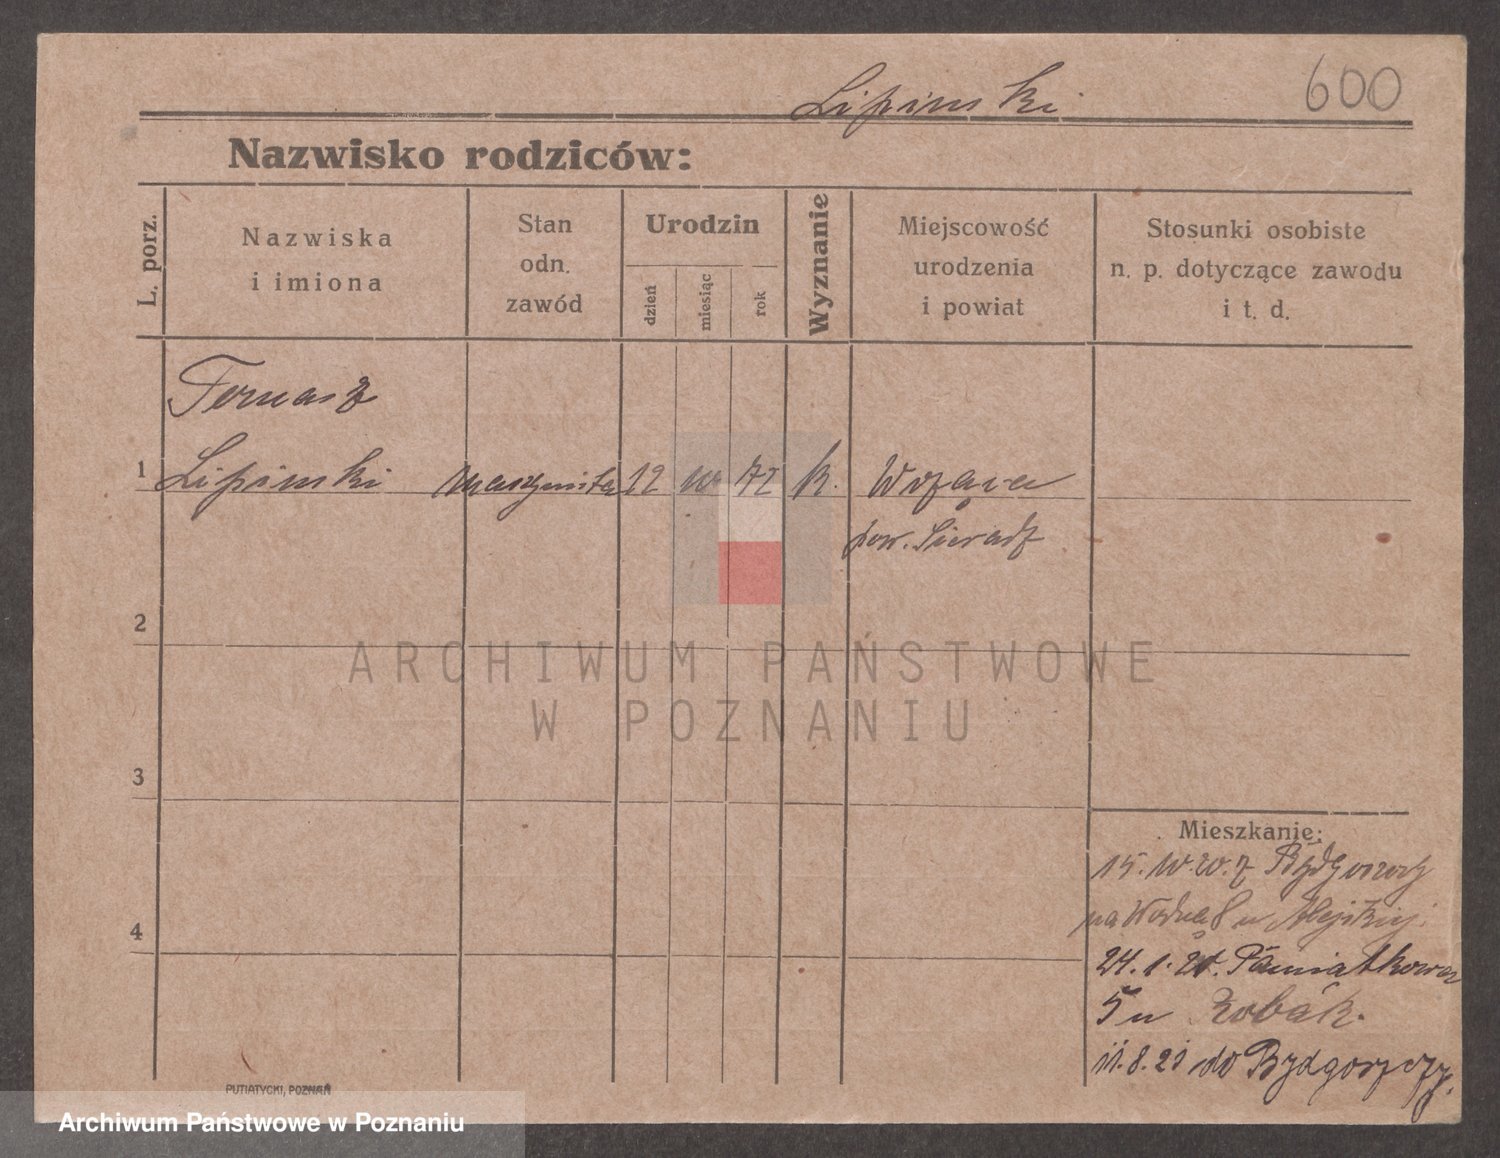 Lipinski
600
Nazwisko rodziców:
L. porz.
Nazwiska
i imiona
Stan
odn.
zawód
Urodzin
dzień
miesiąc
rok
Wyznanie
Miejscowość
urodzenia
i powiat
Stosunki osobiste
n. p. dotyczące zawodu
i t. d.
Tomasz
1
Lipinski maszynista 12 72 k.
pow. Sieradz
2
ARCHIWUM PAŃSTWOWE
W POZNANIU
3
Mieszkanie:
15. z Bydgoszczy
na
4
24. 1. 21. Pamiątkowa
5 u Robák.
11.8.21 do Bydgoszczy.
PUTIATYCKI, POZNAŃ
Archiwum Państwowe w Poznaniu